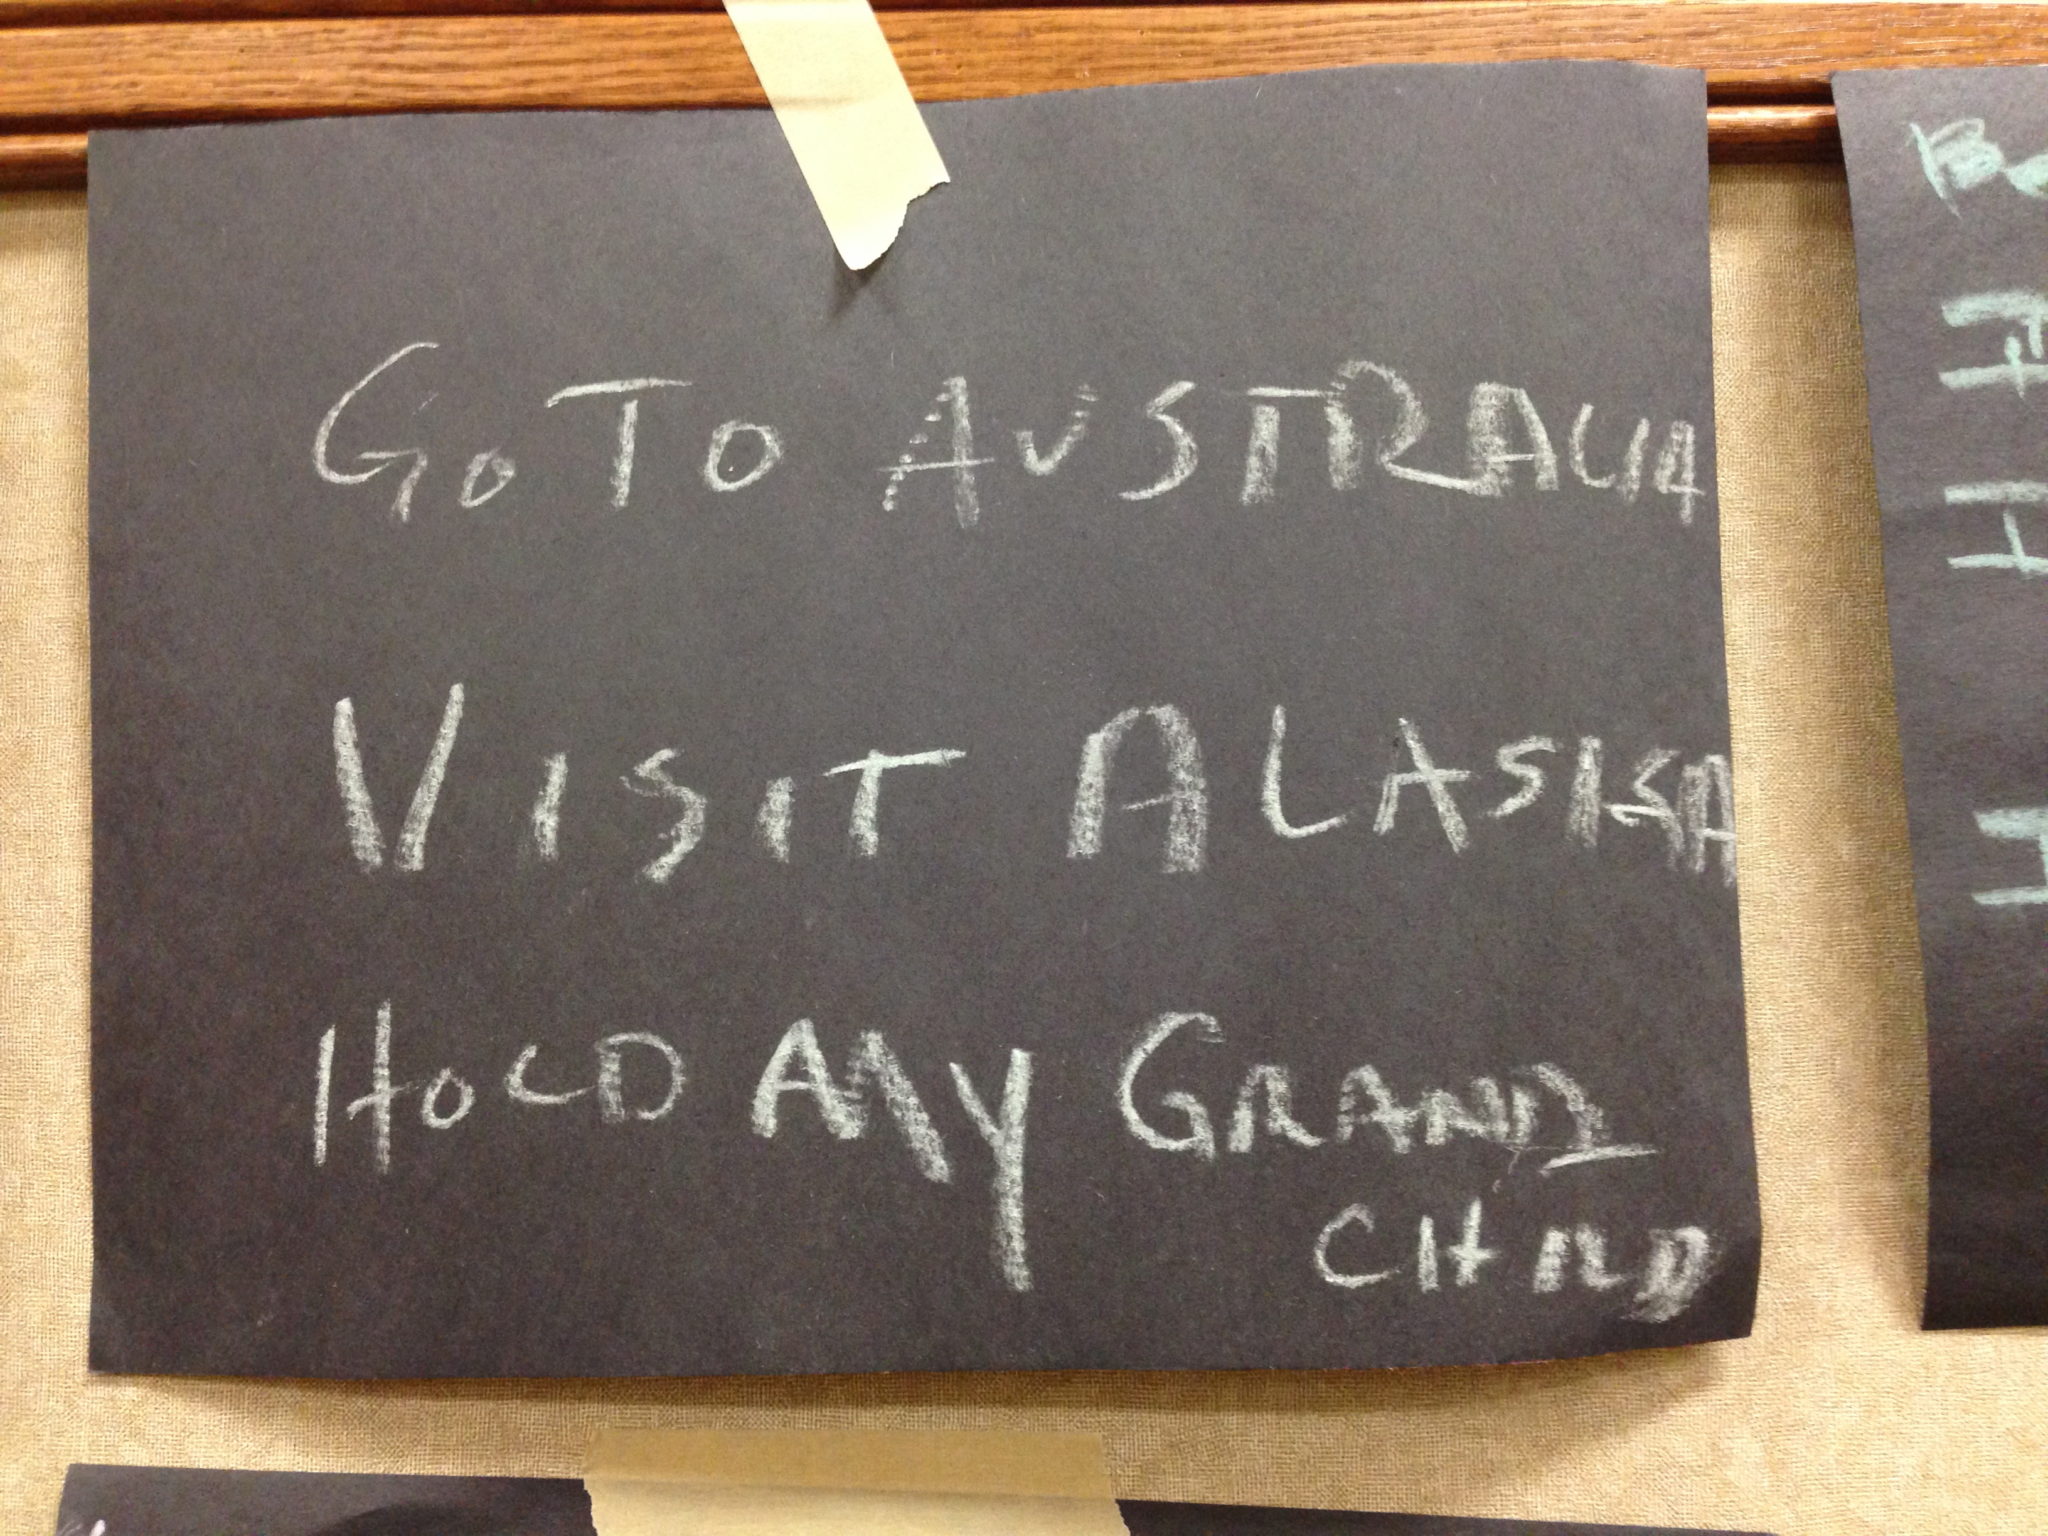 GO TO AUSTRALIA
VISIT ALASKA
HOLD MY GRAND
CHILD